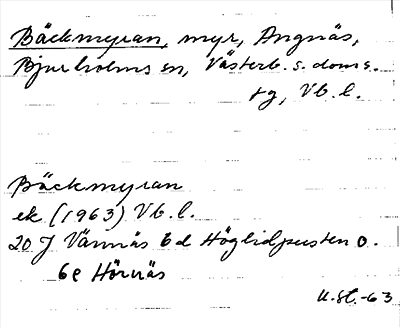 Bäckmyran, myr, Angnäs,
Bjurholms sn, Västerb. s. doms.
tg, Vb. l.
Bäckmyran
ek. (1963) Vb. l.
20 J Vännäs 6d Höglidjusten O.
6e Hörnäs
U.St.-63